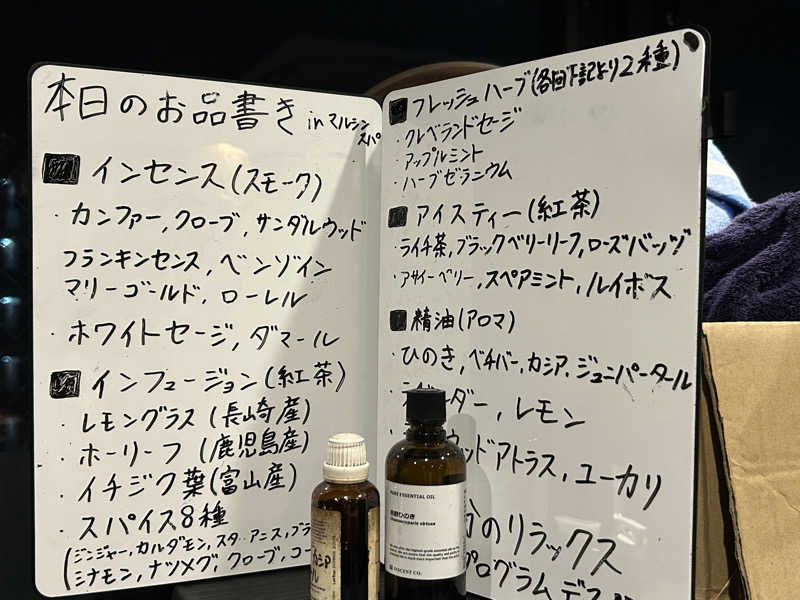 本日のお品書き in マルシンスパ
インセンス(スモーク)
・カンファー,クローブ,サンダルウッド
フランキンセンス,ベンゾイン
マリーゴールド,ローレル
・ホワイトセージ,ダマール
インフュージョン(紅茶)
・レモングラス(長崎産)
・ホーリーフ(鹿児島産)
・イチジク葉(富山産)
・スパイス8種
(ジンジャー,カルダモン,スターアニス,ブラ
シナモン,ナツメグ,クローブ,コー
フレッシュハーブ(各回下記より2種)
・クレベランドセージ
・アップルミント
・ハーブゼラニウム
アイスティー(紅茶)
・ライチ茶,ブラックベリーリーフ,ローズバッツ
・アサイーベリー,スペアミント,ルイボス
精油(アロマ)
・ひのき,ベチバー,カシア,ジュニパータール
ダー,レモン
ウッドアトラス,ユーカリ
分のリラックス
プログラムデス
PURE ESSENTIAL OIL